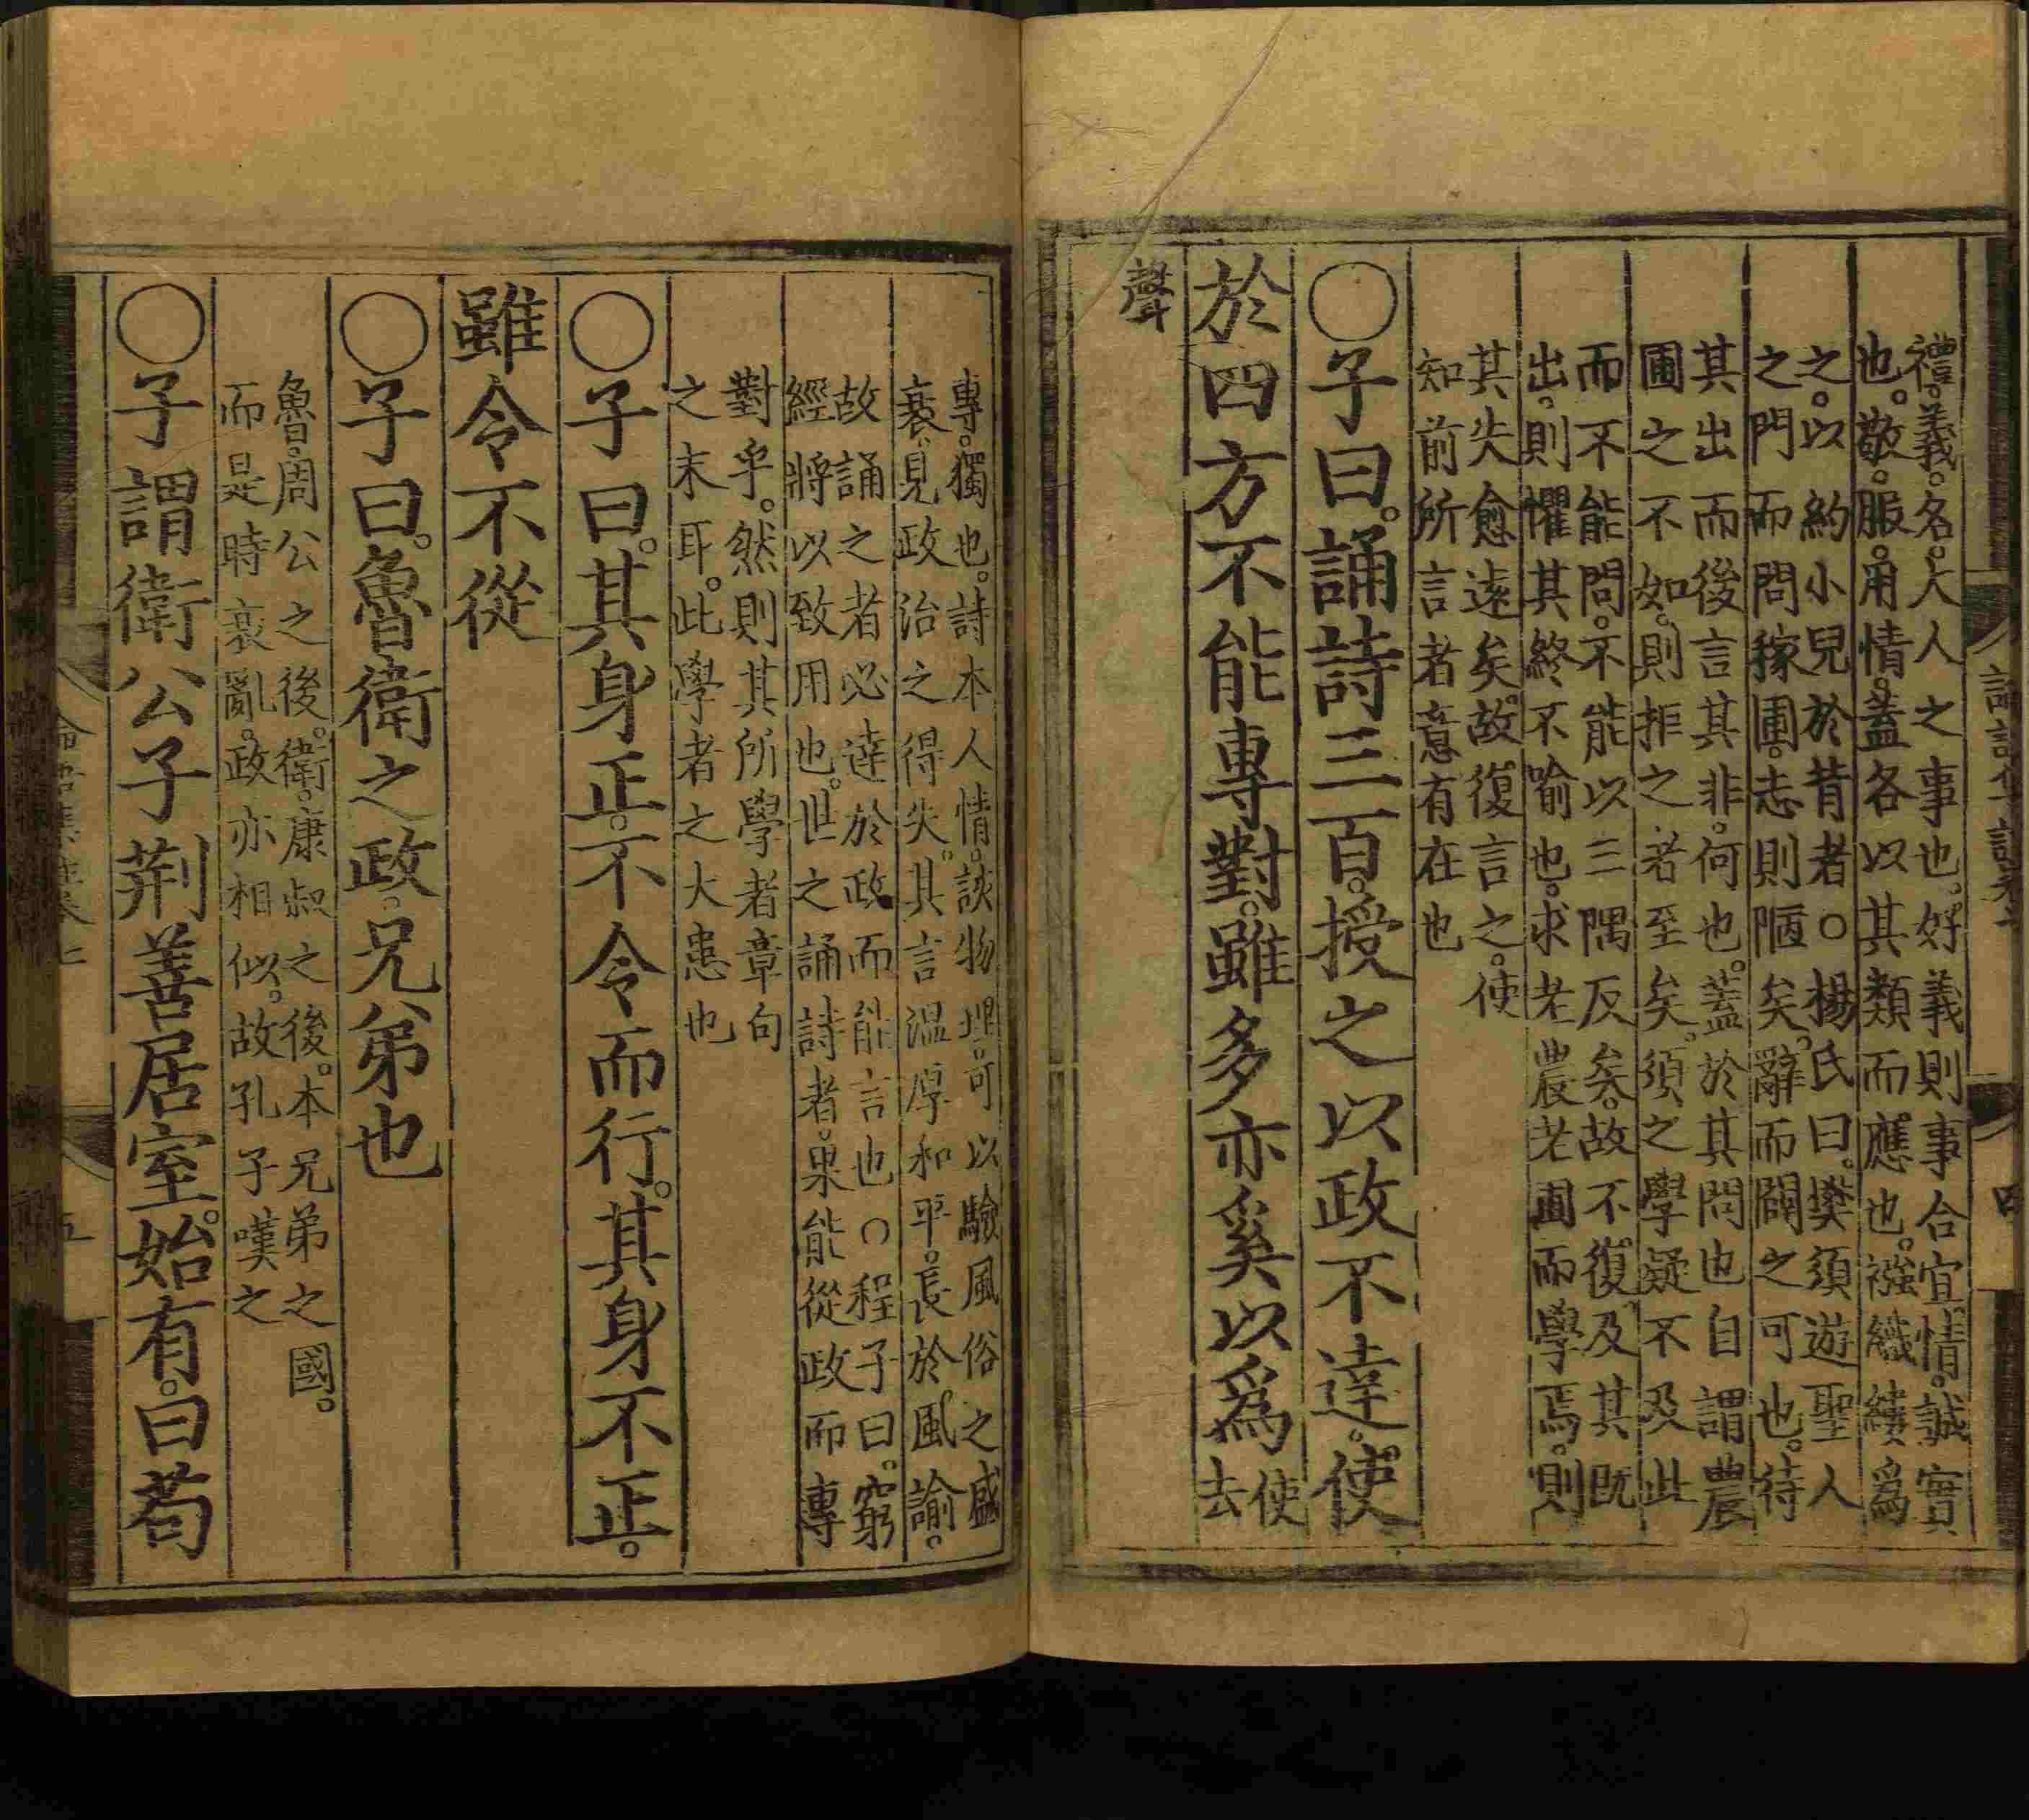 禮。義。名。大人之事也。好義則事合宜。情。誠實
也。敬。服。用情。蓋各以其類而應也。襁織縷爲
之。以約小兒於昔者○楊氏曰。樊須遊聖人
之門而問稼圃。志則陋矣。辭而闢之可也。待
其出而後言其非。何也。蓋於其問也自謂農
圃之不如。則拒之者至矣。須之學疑不及此
而不能問。不能以三隅反矣。故不復及其既
出。則懼其終不喻也。求老農老圃而學焉。則
其失愈遠矣。故復言之。使
知前所言者意有在也
○子曰。誦詩三百。授之以政不達。使
於四方不能專對。雖多亦奚以爲
使
去
聲
專。獨也。詩本人情。談物理。可以驗風俗之盛
衰。見政治之得失。其言溫厚和平。長於風諭。
故誦之者必達於政而能言也○程子曰。窮
經將以致用也。世之誦詩者。果能從政而專
對乎。然則其所學者章句
之末耳。此學者之大患也
○子曰。其身正。不令而行。其身不正。
雖令不從
○子曰。魯衛之政。兄弟也
魯。周公之後。衛。康叔之後。本兄弟之國。
而是時衰亂。政亦相似。故孔子嘆之
○子謂衛公子荆善居室。始有。曰苟